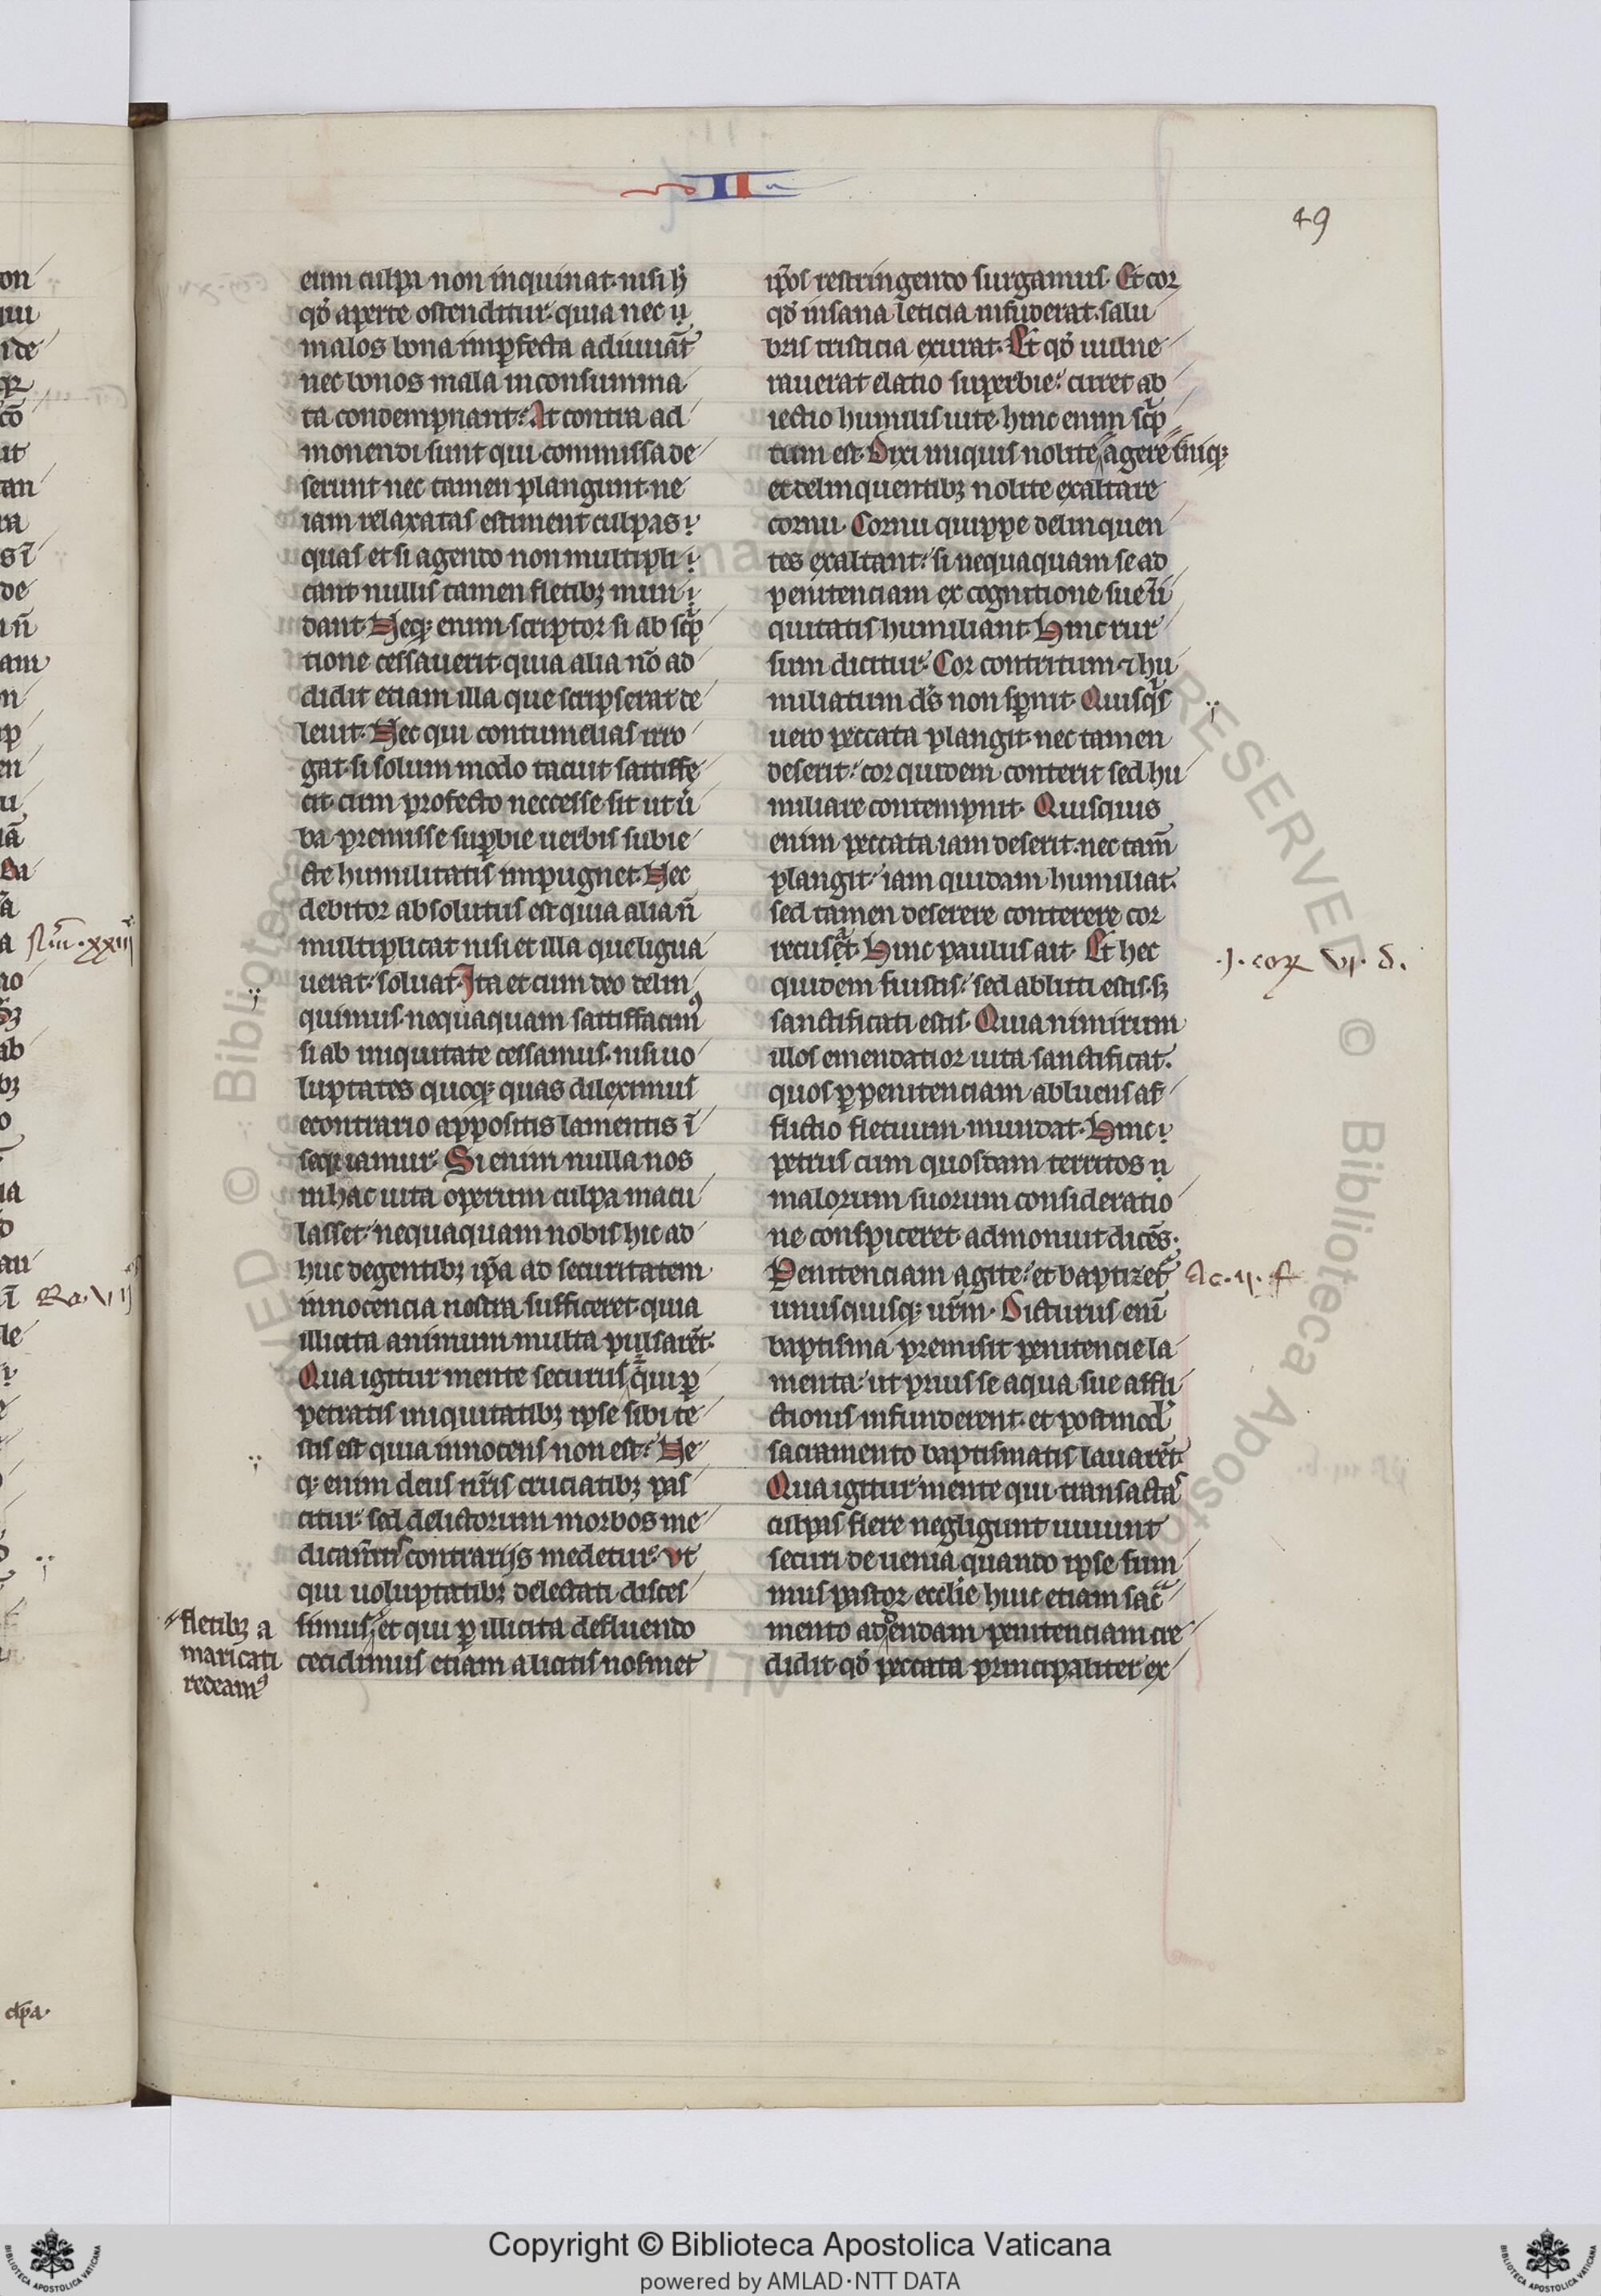 II
49
eum culpa non inquinat· nisi h̾
qđ aperte ostenditur· quia nec ÿ
malos bona imꝑfecta adiuuāt
nec bonos mala inconsumma
ta condempnant· At contra ad
monendi sunt qui commissa de
serunt nec tamen plangunt· ne
iam relaxatas estiment culpas
quas et si agendo non multipli
cant nullis tamen fletibꝫ mun
dant· Neqꝫ enim scriptor si ab scͥp
tione cessauerit· quia alia nō ad
didit etiam illa que scripserat de
leuit· Nec qui contumelias irro
gat· si solum modo tacuit sattiffe
cit· cum profecto neccesse sit ut ů
ba premisse suꝑbie uerbis subie
cte humilitatis impugnet· Nec
debitor absolutus est quia alia n̄
multiplicat nisi et illa que ligua
uerat· soluat· Ita et cum deo delin
quimus· nequaquam sattiffacimꝰ
si ab iniquitate cessamus· nisi uo
luptates quoqꝫ quas dileximus
econtrario appositis lamentis ī
sequamur· Si enim nulla nos
in hac uita operum culpa macu
lasset· nequaquam nobis hic ad
huc degentibꝫ ip̄a ad securitatem
innocencia nostra sufficeret· quia
illicita animum multa pulsarēt·
Qua igitur mente securus qui ꝑ
petratis iniquitatibꝫ ipse sibi te
stis est quia innocens non est· Ne
qꝫ enim deus nr̄is cruciatibꝫ pas
citur· sed delictorum morbos me
dicam̄tis contrarijs medetur· vt
qui uoluptatibꝫ delectati disces
simus· et qui ꝑ illicita defluendo
cecidimus etiam a licitis nosmet
fletibꝫ a
maricati
redeamꝰ
ip̄os restringendo surgamus· Et cor
qđ insana leticia infuderat· salu
bris tristicia exurat· Et qđ uulne
rauerat elatio superbie· curet ab
iectio humilis uite· hinc enim scͥp
tum est· Dixi iniquis nolite agere iniqꝫ
et delinquentibꝫ nolite exaltare
cornu· Cornu quippe delinquen
tes exaltant· si nequaquam se ad
penitenciam ex cognitione sue ī
quitatis humiliant· Hinc rur
sum dicitur· Cor contritum ⁊ hu
miliatum ds̄ non sꝑnit· Quisqͥs
uero peccata plangit· nec tamen
deserit· cor quidem conterit sed hu
miliare contempnit· Quisquis
enim peccata iam deserit· nec tam̄
plangit· iam quidam humiliat·
sed tamen deserere conterere cor
recusat· Hinc paulus ait· Et hec
quidem fuistis· sed abluti estis· sꝫ
sanctificati estis· Quia nimirum
illos emendatior uita sanctificat·
quos ꝑ penitenciam abluens af
flictio fletuum mundat· Hinc
petrus cum quosdam territos ÿ
malorum suorum consideratio
ne conspiceret· admonuit dicēs·
Penitenciam agite· et baptizet͛
unusquisqꝫ ur̄m· Dicturus enī
baptisma premisit penitencie la
menta· ut prius se aqua sue affli
ctionis infunderent· et postmod̾
sacramento baptismatis lauarēt·
Qua igitur mente qui transactas
culpas flere negligunt uiuunt
securi de uenia quando ipse sum
mus pastor ecclīe huic etiam sac̄
mento addendam penitenciam cre
didit· qđ peccata principaliter ex
·j· coꝝ vj· d·
Ac·ij· f
Copyright © Biblioteca Apostolica Vaticana
powered by AMLAD·NTT DATA